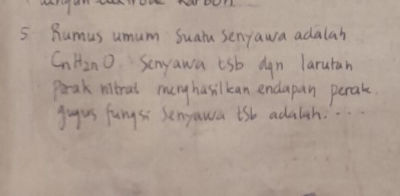 5 Rumus umum suatu senyawa adalah
CnH2nO. Senyawa tsb dgn larutan
perak nitrat menghasilkan endapan perak.
gugus fungsi senyawa tsb adalah....